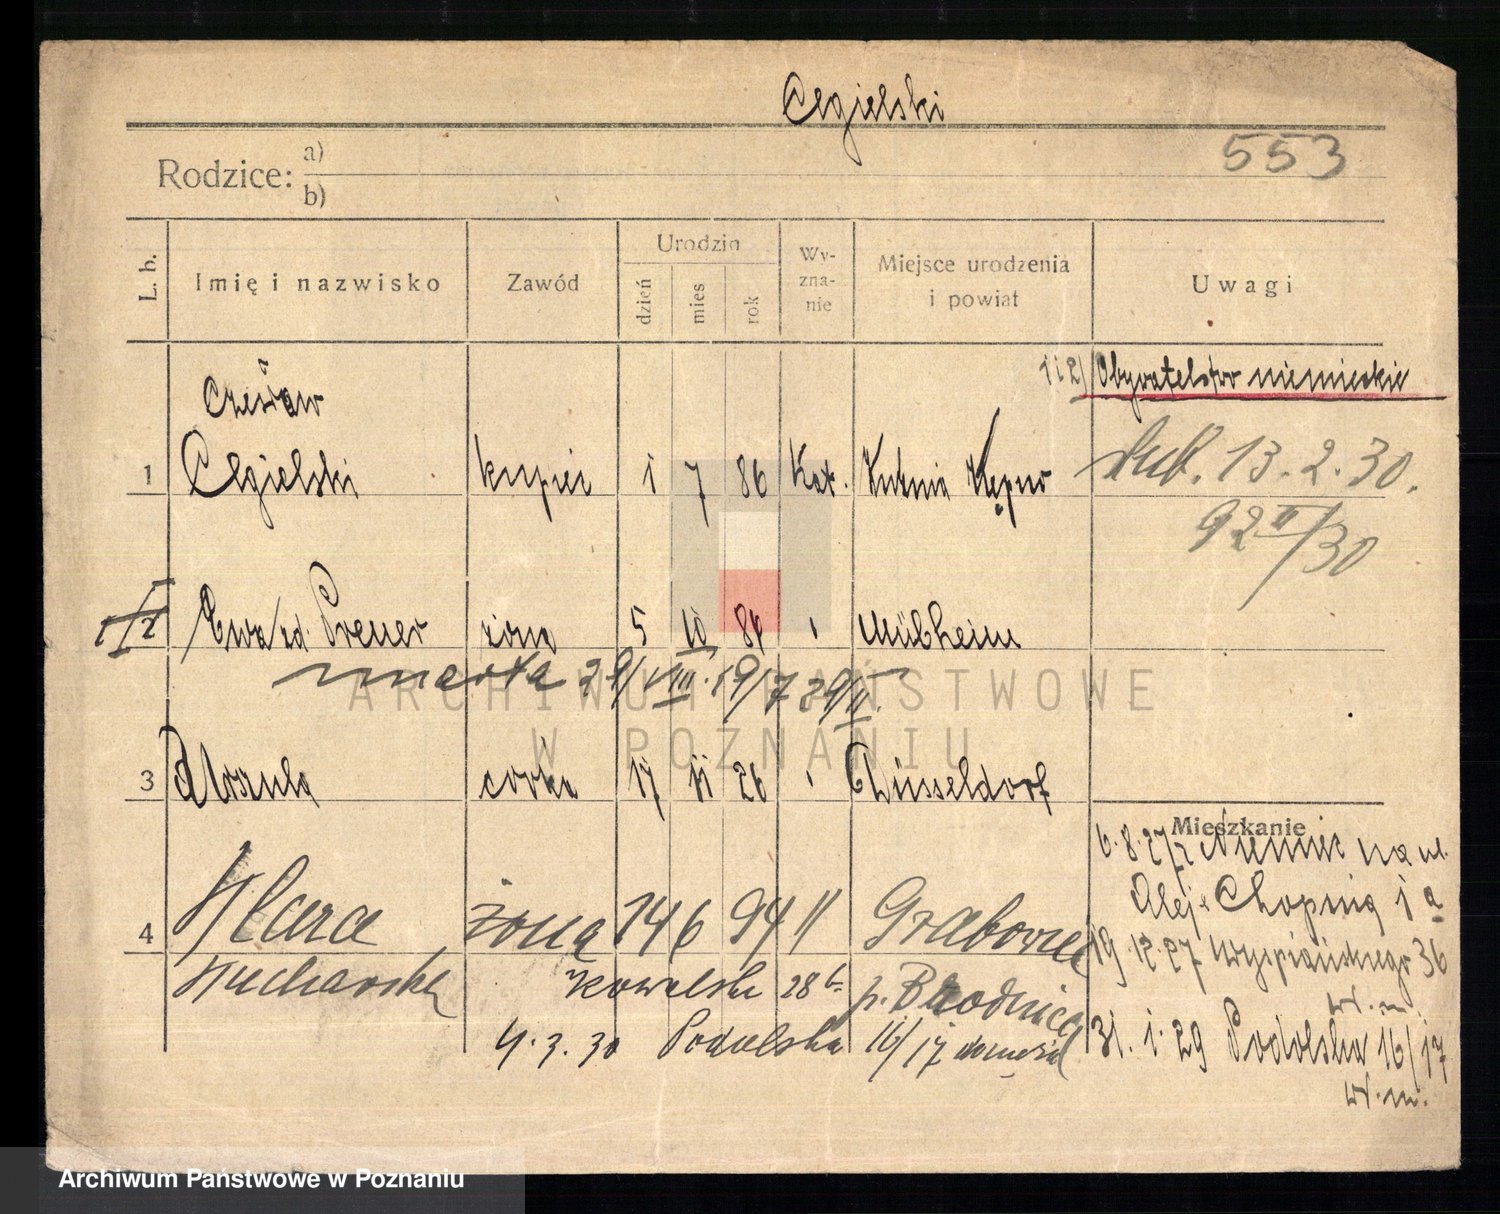 Cegielski
553
Rodzice: a)
b)
L. b. Imię i nazwisko Zawód Urodzin dzień mies rok Wy-zna-nie Miejsce urodzenia i powiat Uwagi
1 i 2) Obywatelstwo niemieckie
Czesław
1 Cegielski kupiec 1 7 86 Kat. Kępno
ślub. 13.2.30.
92 II/30
2 Ewa zd. żona 5 10 84 " Mülheim
zmarła 29/VIII. 1917 29/II.
3 Urszula córka 17 11 26 " Düsseldorf
Mieszkanie
6.8.27 z Niemiec na ul.
Alej. Chopina 1a
4 Klara żona 14 6 94 " Grabowiec
19.12.27 Wyspiańskiego 36
Kucharska Kowalski 28 p. Brodnica
w. m.
4.3.30 Podolska 16/17
31.1.29 Podolska 16/17
w. m.
ARCHIWUM PAŃSTWOWE
W POZNANIU
Archiwum Państwowe w Poznaniu